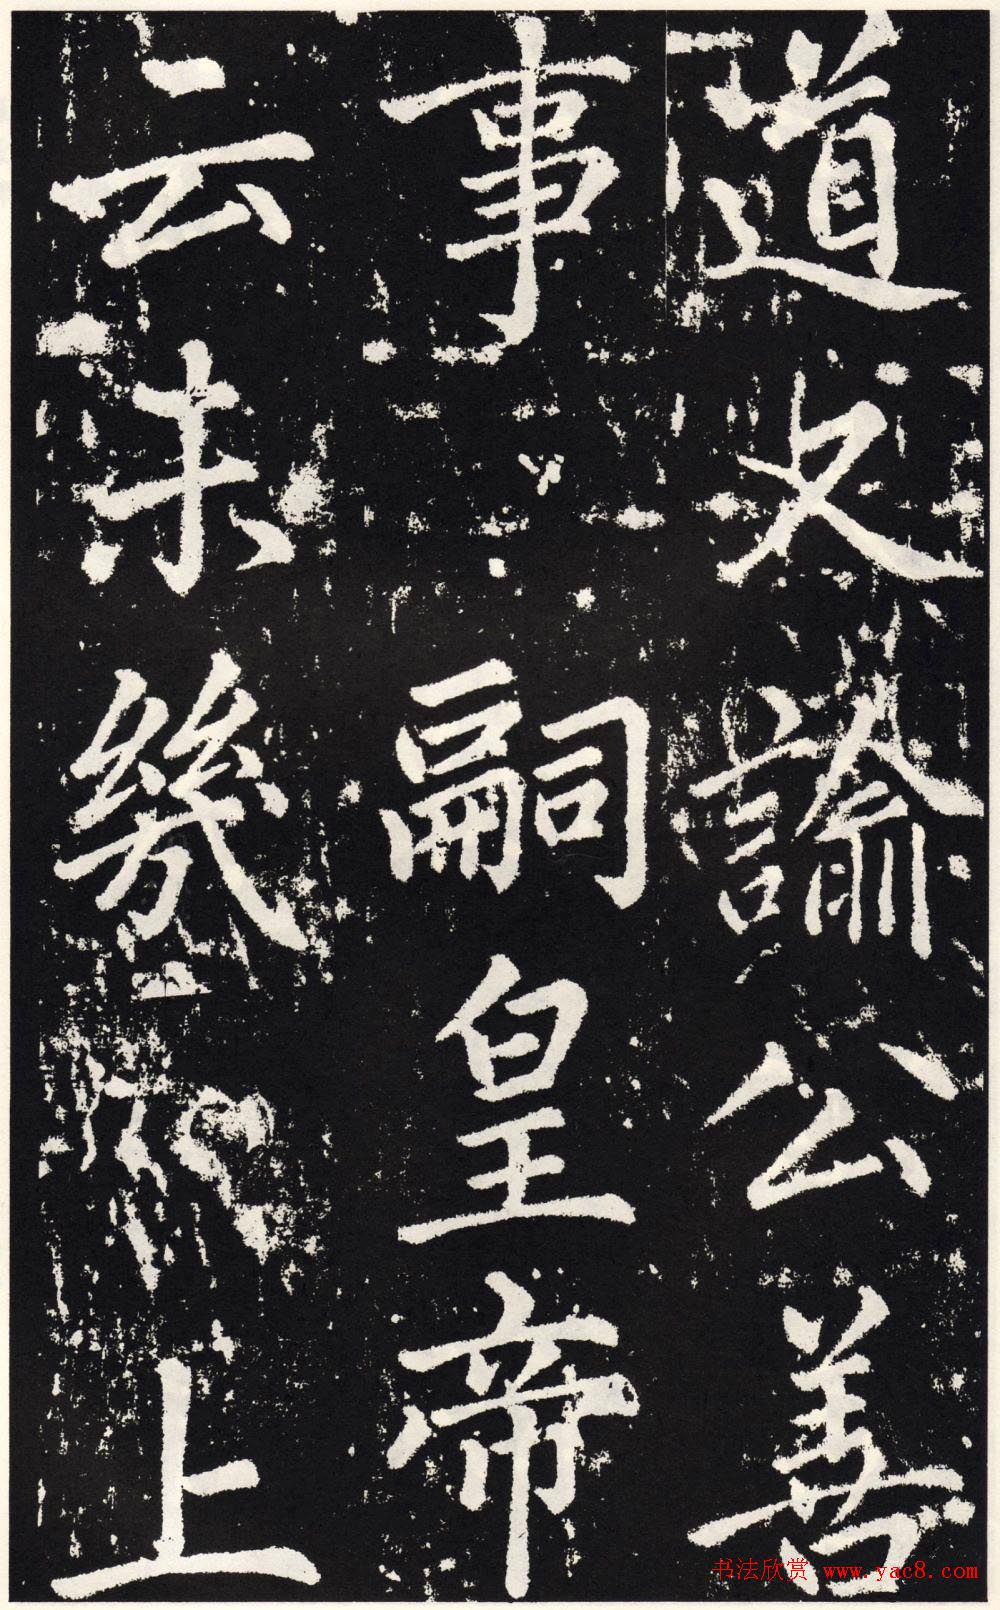 道又諭公善
事嗣皇帝
云未幾上
书法欣赏 www.yac8.com